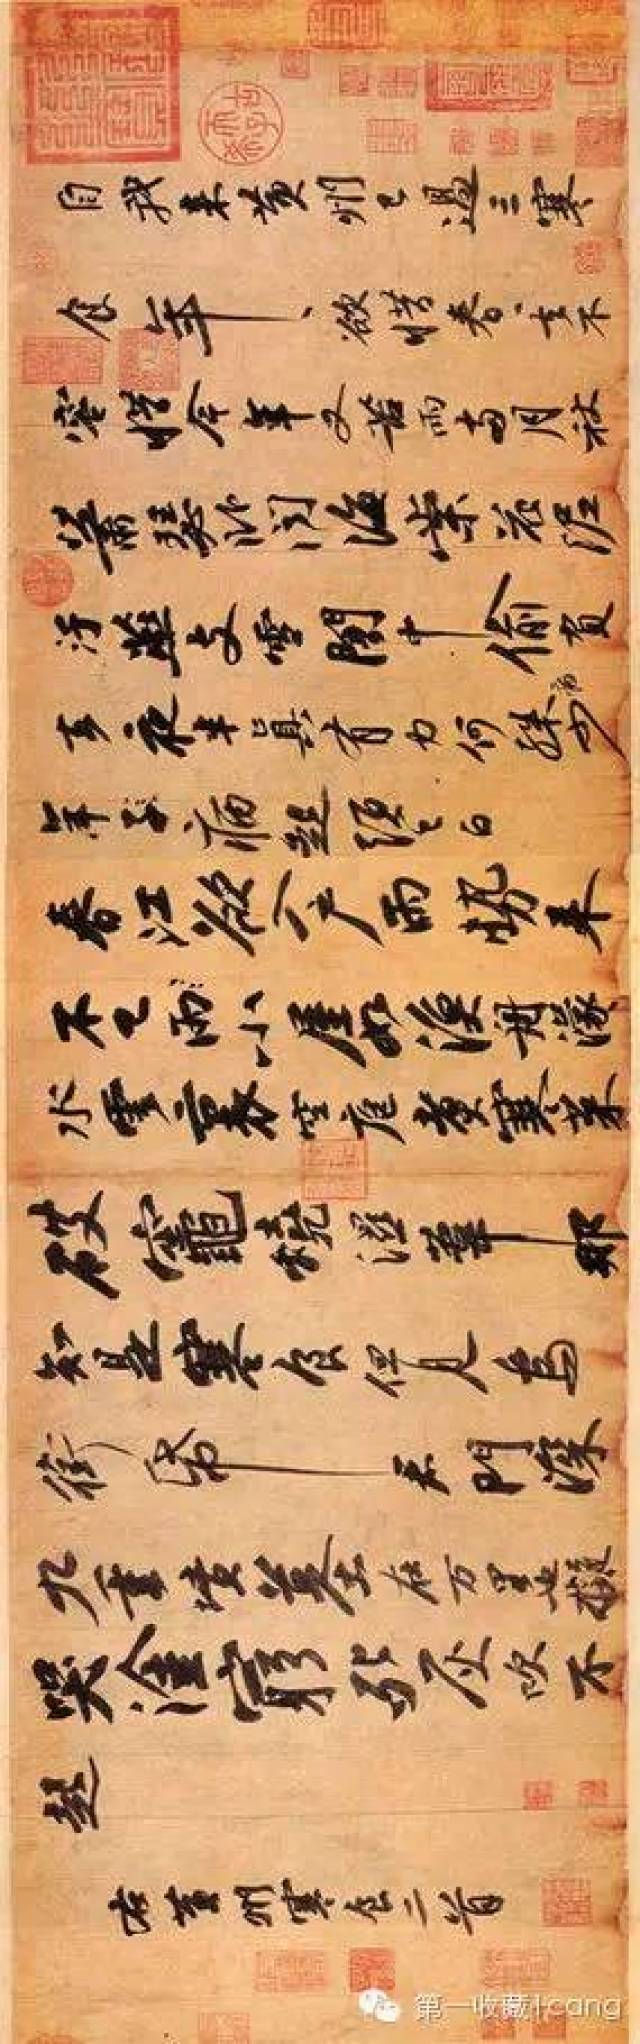 自我來黄州已過三寒
食年〻欲惜春〻去不
容惜今年又苦雨兩月秋
蕭瑟卧聞海棠花泥
汙燕支雪闇中偷負
去夜半真有力何殊病少
年子病起頭已白
春江欲入户雨勢來
不已雨小屋如漁舟濛〻
水雲裏空庖煮寒菜
破竈燒濕葦那
知是寒食但見烏
銜帋君門深
九重墳墓在万里也擬
哭塗窮死灰吹不
起
右黄州寒食二首
第一收藏|cang